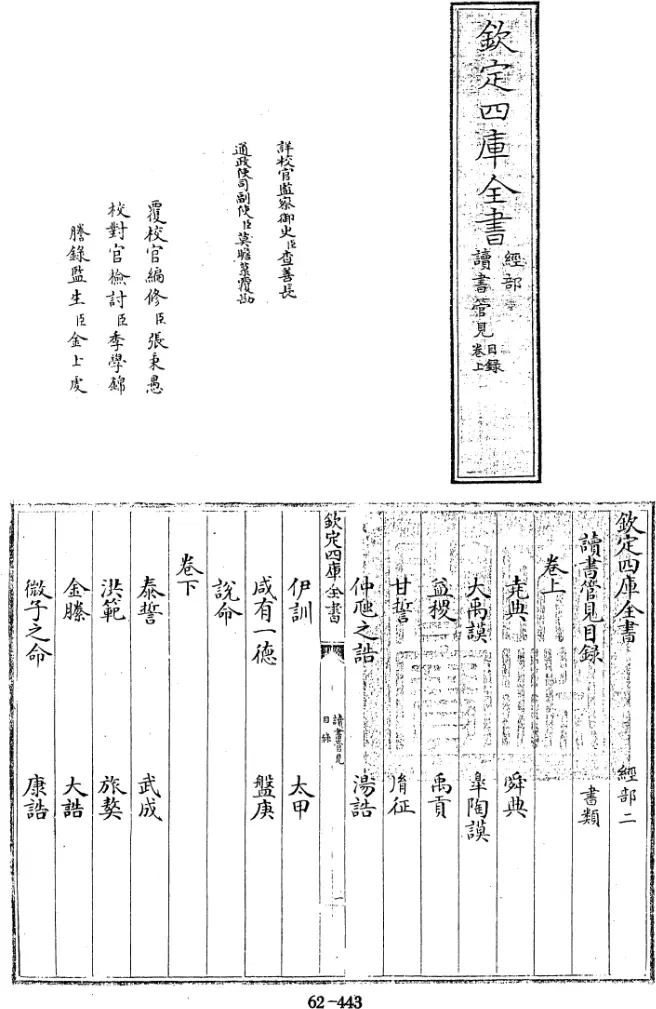 欽定四庫全書
經部
讀書管見
目錄
卷上
詳校官監察御史臣查善長
通政使司副使臣莫瞻菉覆勘
覆校官編修臣張秉愚
校對官檢討臣季學錦
謄錄監生臣金上虔
欽定四庫全書 經部二
讀書管見目錄 書類
卷上
堯典 舜典
大禹謨 臯陶謨
益稷 禹貢
甘誓 胤征
仲虺之誥 湯誥
欽定四庫全書 讀書管見 目錄 一
伊訓 太甲
咸有一德 盤庚
說命
卷下
泰誓 武成
洪範 旅獒
金縢 大誥
微子之命 康誥
62-443